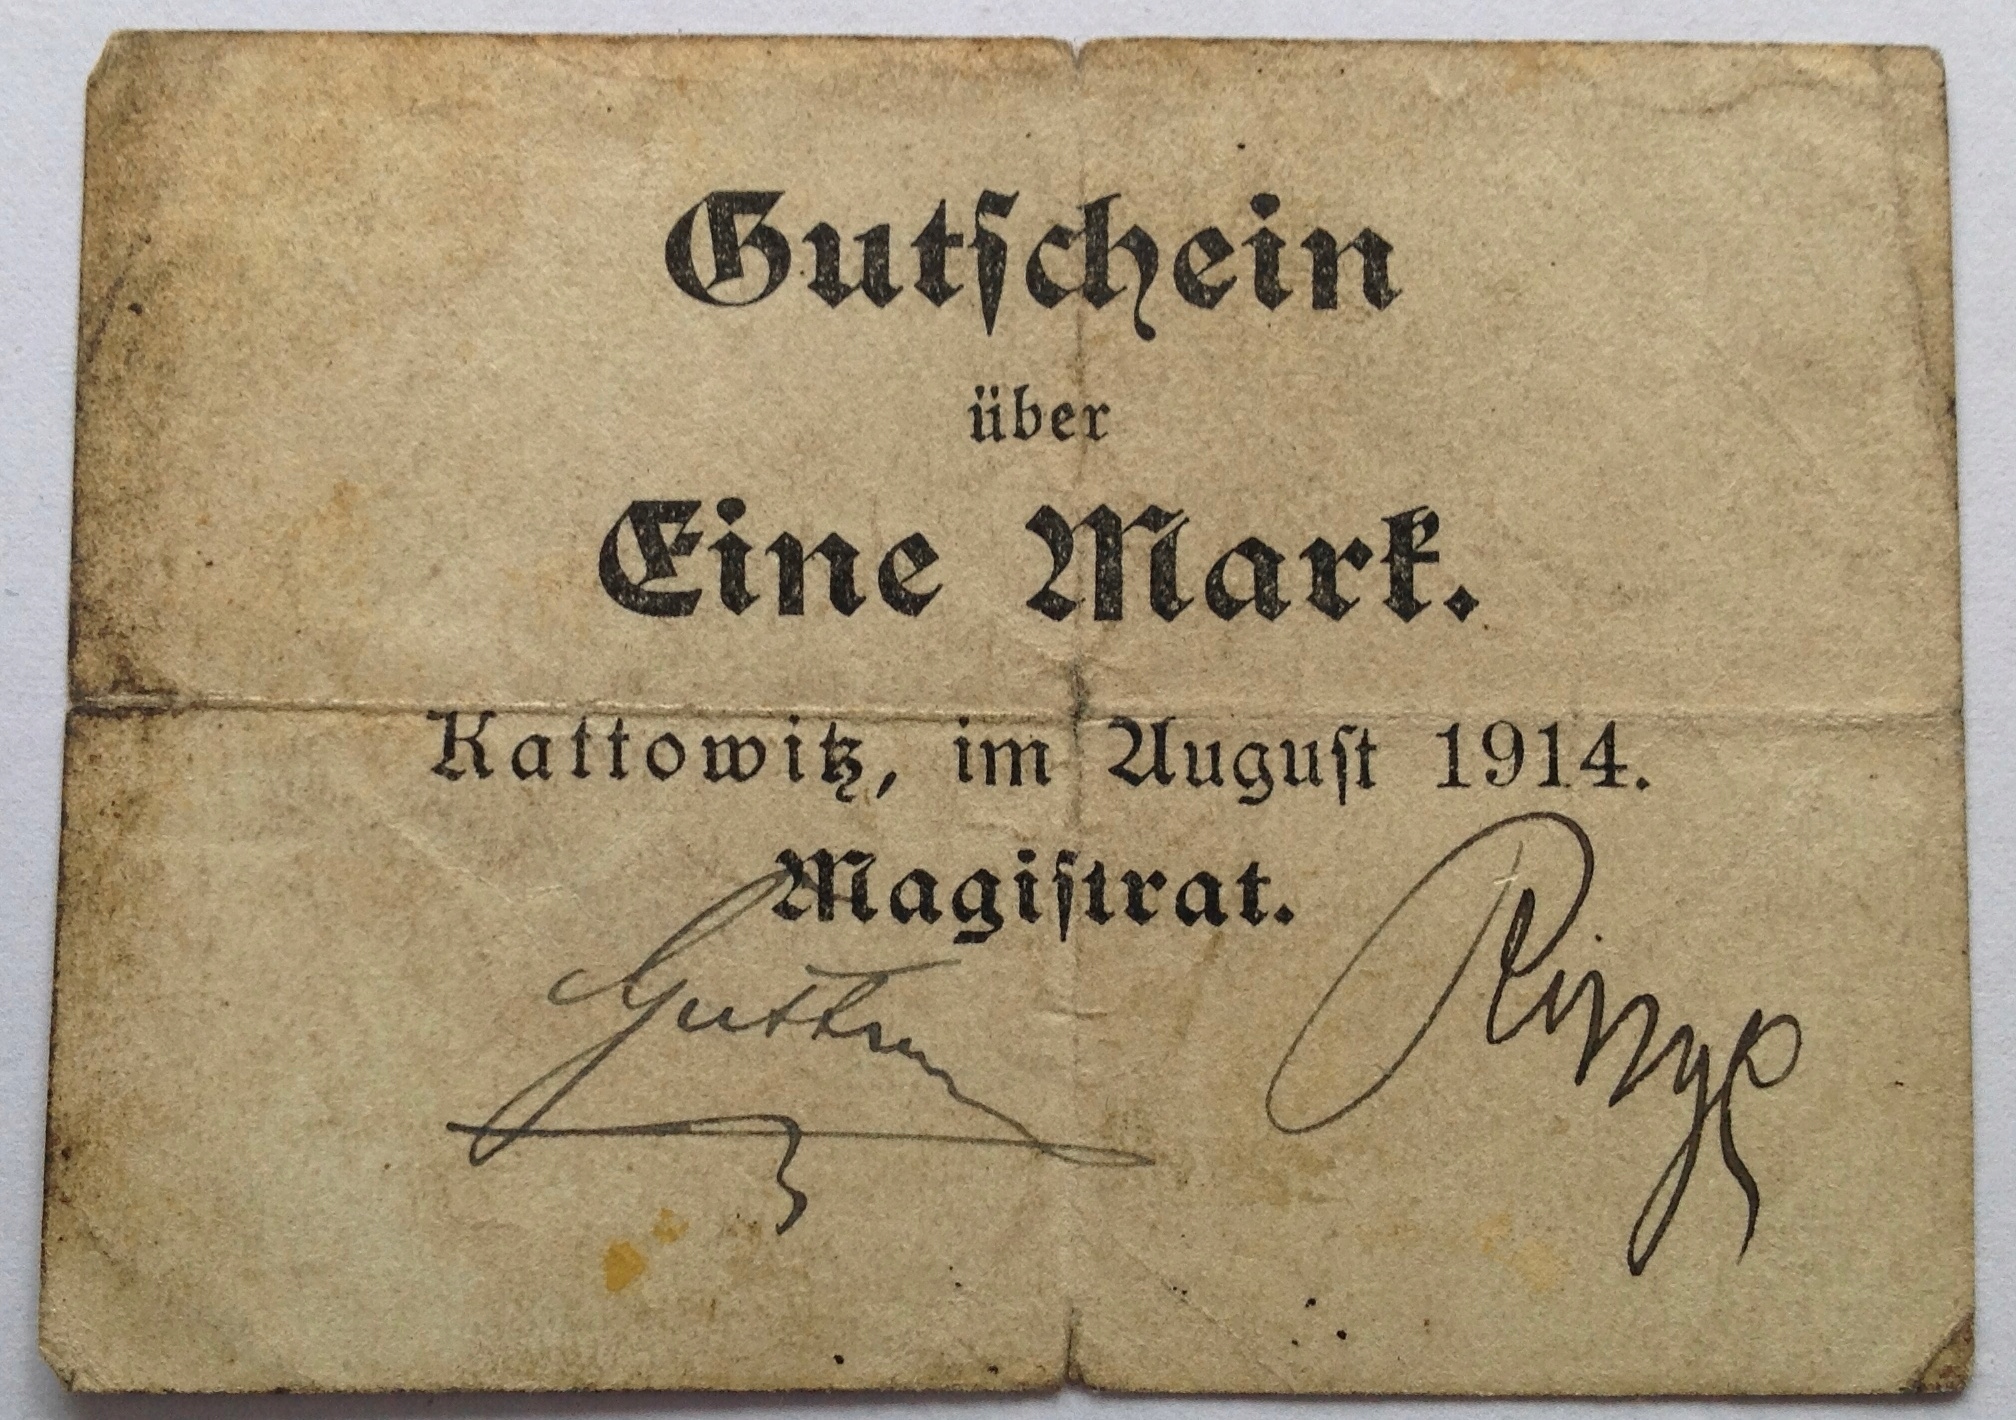 Gutschein
über
Eine Mark.
Kattowitz, im August 1914.
Magistrat.